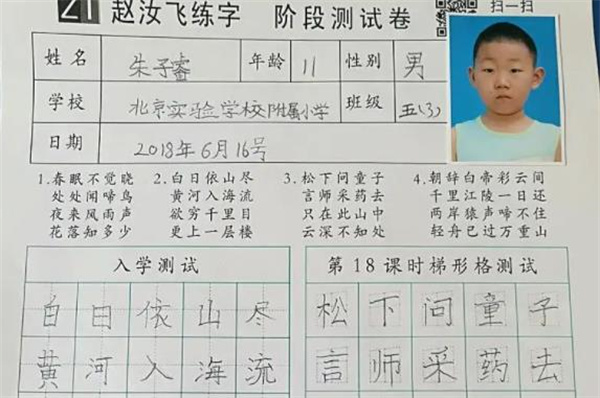 21 赵汝飞练字 阶段测试卷 扫一扫
姓名 朱子睿 年龄 11 性别 男
学校 北京实验学校附属小学 班级 五(3)
日期 2018年6月16号
1.春眠不觉晓 2.白日依山尽 3.松下问童子 4.朝辞白帝彩云间
处处闻啼鸟 黄河入海流 言师采药去 千里江陵一日还
夜来风雨声 欲穷千里目 只在此山中 两岸猿声啼不住
花落知多少 更上一层楼 云深不知处 轻舟已过万重山
入学测试 第18课时梯形格测试
白日依山尽 松下问童子
黄河入海流 言师采药去